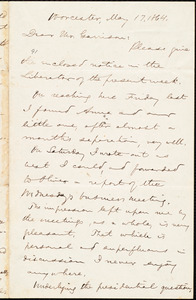 Worcester, May 17, 1864.
Dear Mr. Garrison:
Please give
the inclosed notice in the
Liberator of the present week.
On reaching here Friday last
I found Annie and our
little one, after almost a
month's separation, very well.
On Saturday I wrote out as
best I could and forwarded
a report of the
Wednesday's business meeting.
The impression left upon me by
the meetings as a whole, is very
pleasant. That which is
personal and unpleasant in
discussion I never enjoy
anywhere.
Underlying the presidential question